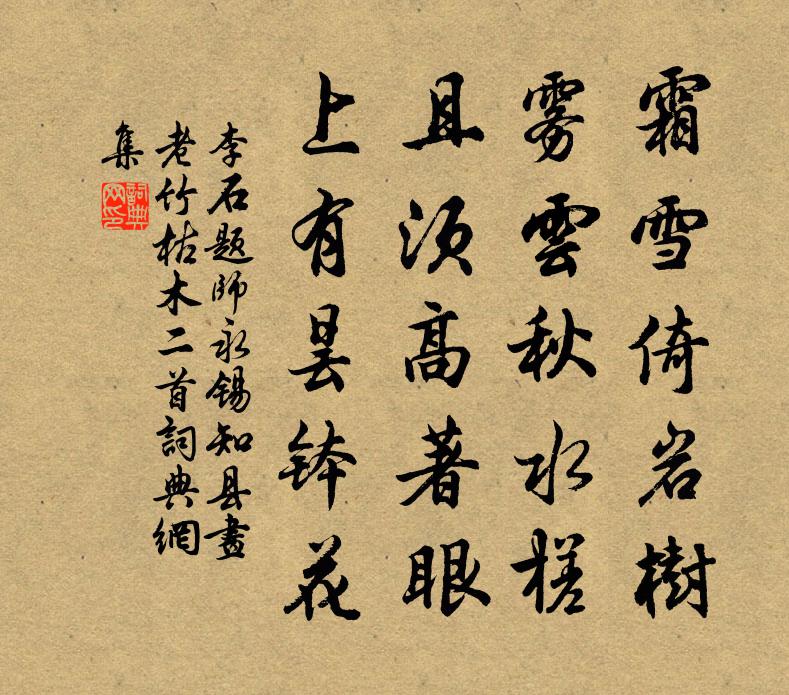 霜雪倚岩樹
雾雲秋水槎
且须高著眼
上有昙钵花
李石题師永锡知县畫
老竹枯木二首詞典網
集
詞典网印